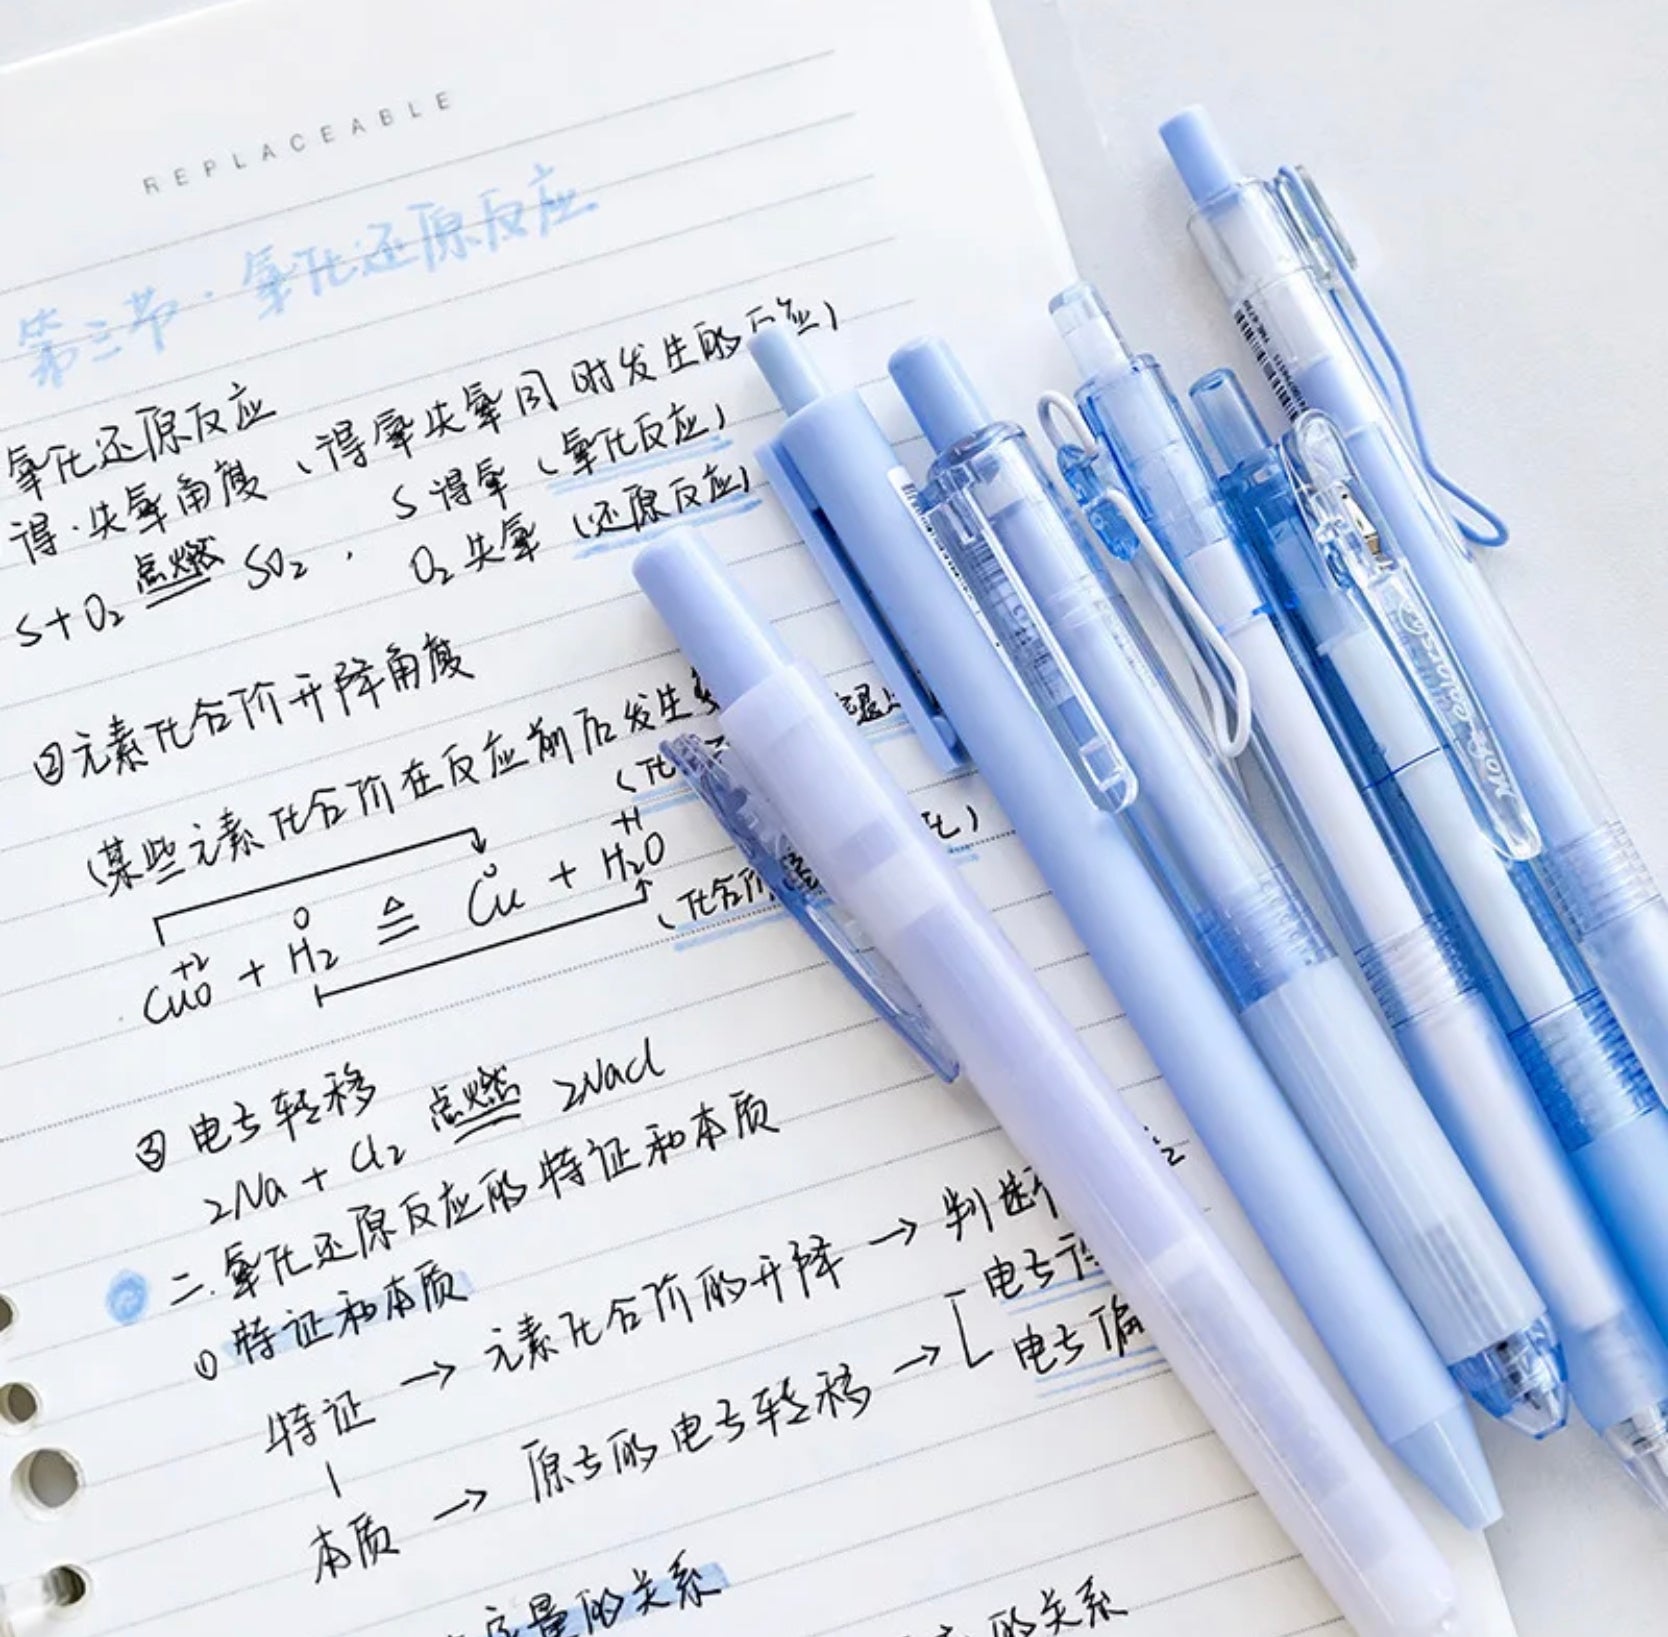 REPLACEABLE
第三节·氧化还原反应
氧化还原反应
得·失氧角度 (得氧失氧同时发生的反应)
S+O₂ 点燃 SO₂ , S 得氧 (氧化反应)
O₂ 失氧 (还原反应)
②元素化合价升降角度
(某些元素化合价在反应前后发生
(化
+2 0 0 +1
CuO + H₂ △ Cu + H₂O
(化合价 化)
③ 电子转移
2Na + Cl₂ 点燃 2NaCl
二.氧化还原反应的特征和本质
① 特征和本质
特征 → 元素化合价的升降 → 判断
本质 → 原子的电子转移 → 电子
电子偏
量的关系
的关系
Mofi color